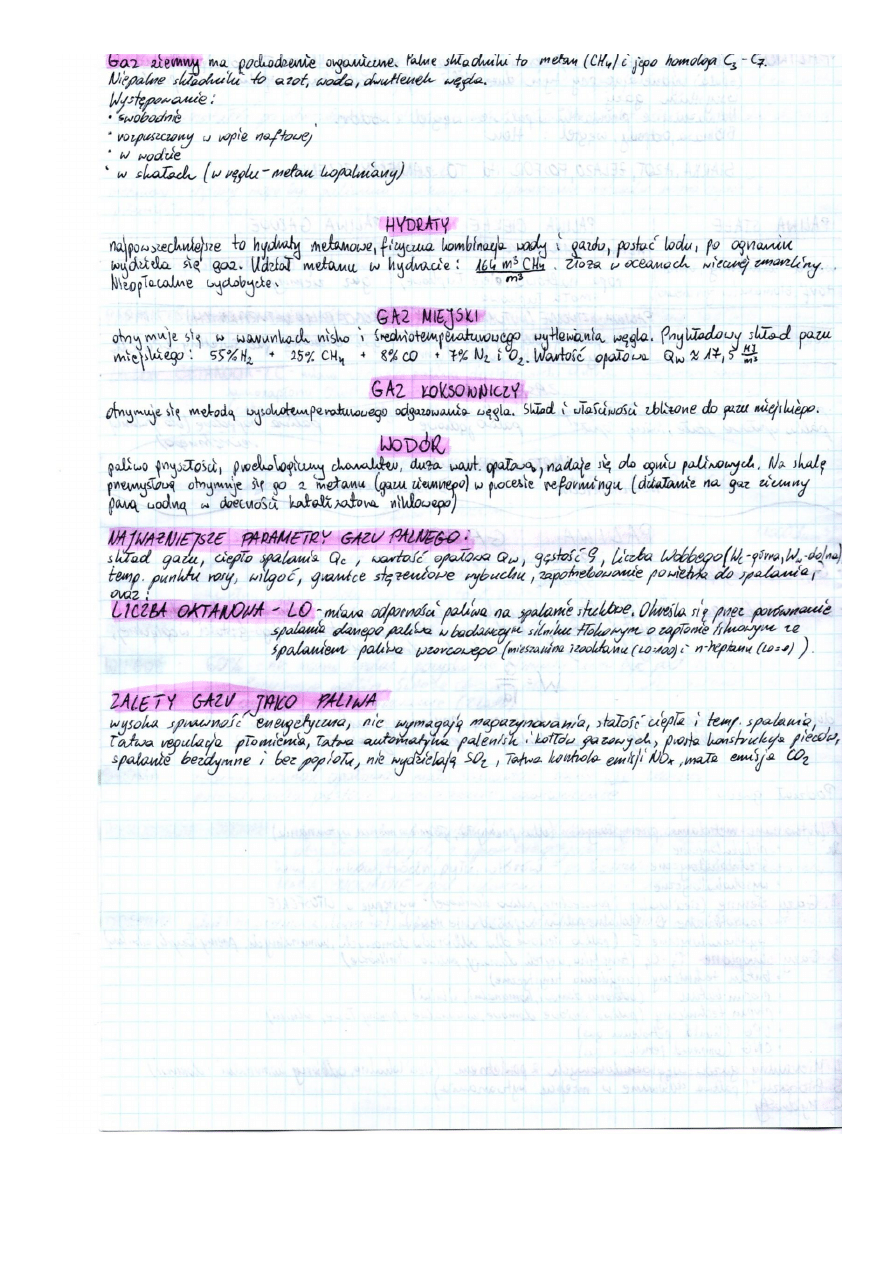 Gaz ziemny ma pochodzenie organiczne. Palne składniki to metan (CH4) i jego homologi C3-C7.
Niepalne składniki to azot, woda, dwutlenek węgla.
Występowanie:
• swobodnie
• rozpuszczony w ropie naftowej
• w wodzie
• w skałach (w węglu - metan kopalniany)
HYDRATY
najpowszechniejsze to hydraty metanowe, fizyczna kombinacja wody i gazu, postać lodu, po ogrzaniu
wydziela się gaz. Udział metanu w hydracie: 164 m³ CH4 / m³. Złoża w oceanach wiecznej zmarzliny.
Nieopłacalne wydobycie.
GAZ MIEJSKI
otrzymuje się w warunkach nisko i średniotemperaturowego wytlewania węgla. Przykładowy skład gazu
miejskiego: 55% H2 + 25% CH4 + 8% CO + 7% N2 i O2. Wartość opałowa Qw ≈ 17,5 MJ/m³
GAZ KOKSOWNICZY
otrzymuje się metodą wysokotemperaturowego odgazowania węgla. Skład i właściwości zbliżone do gazu miejskiego.
WODÓR
paliwo przyszłości, proekologiczny charakter, duża wart. opałowa, nadaje się do ogniw paliwowych. Na skalę
przemysłową otrzymuje się go z metanu (gazu ziemnego) w procesie reformingu (działanie na gaz ziemny
parą wodną w obecności katalizatora niklowego)
NAJWAŻNIEJSZE PARAMETRY GAZU PALNEGO:
skład gazu, ciepło spalania Qc, wartość opałowa Qw, gęstość ρ, liczba Wobbego (górna, dolna)
temp. punktu rosy, wilgoć, granice stężeniowe wybuchu, zapotrzebowanie powietrza do spalania,
oraz:
LICZBA OKTANOWA - LO - miara odporności paliwa na spalanie stukowe. Określa się przez porównanie
spalania danego paliwa w badawczym silniku tłokowym o zapłonie iskrowym ze
spalaniem paliwa wzorcowego (mieszanina izooktanu (LO=100) i n-heptanu (LO=0)).
ZALETY GAZU JAKO PALIWA
wysoka sprawność energetyczna, nie wymagają magazynowania, stałość ciepła i temp. spalania,
łatwa regulacja płomienia, łatwa automatyka palenisk i kotłów gazowych, prosta konstrukcja pieców,
spalanie bezdymne i bez popiołu, nie wydzielają SO2, łatwa kontrola emisji NOx, mała emisja CO2